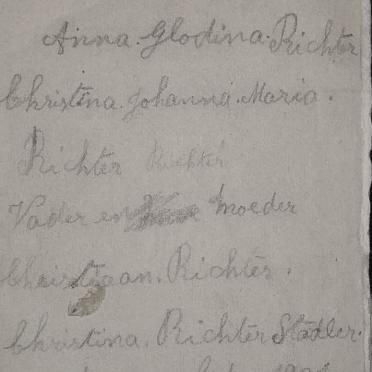 Anna. Glodina. Richter
Christina. Johanna. Maria.
Richter Richter
Vader en moeder
Christiaan. Richter.
Christina. Richter Stadler.